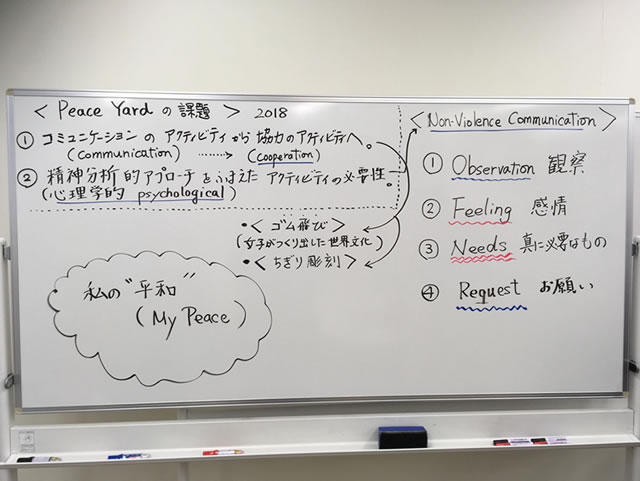 < Peace Yard の課題 > 2018
① コミュニケーションの アクティビティから 協力のアクティビティへ。
(communication) ‥‥‥→ (cooperation)
② 精神分析的アプローチをふまえた アクティビティの必要性。
(心理学的 psychological)
・< ゴム飛び >
(女子がつくり出した世界文化)
・< ちぎり彫刻 >
私の"平和"
(My Peace)
< Non-Violence Communication >
① Observation 観察
② Feeling 感情
③ Needs 真に必要なもの
④ Request お願い